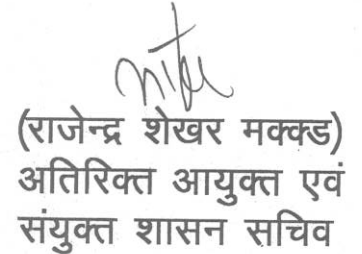 (राजेन्द्र शेखर मक्कड)
अतिरिक्त आयुक्त एवं
संयुक्त शासन सचिव